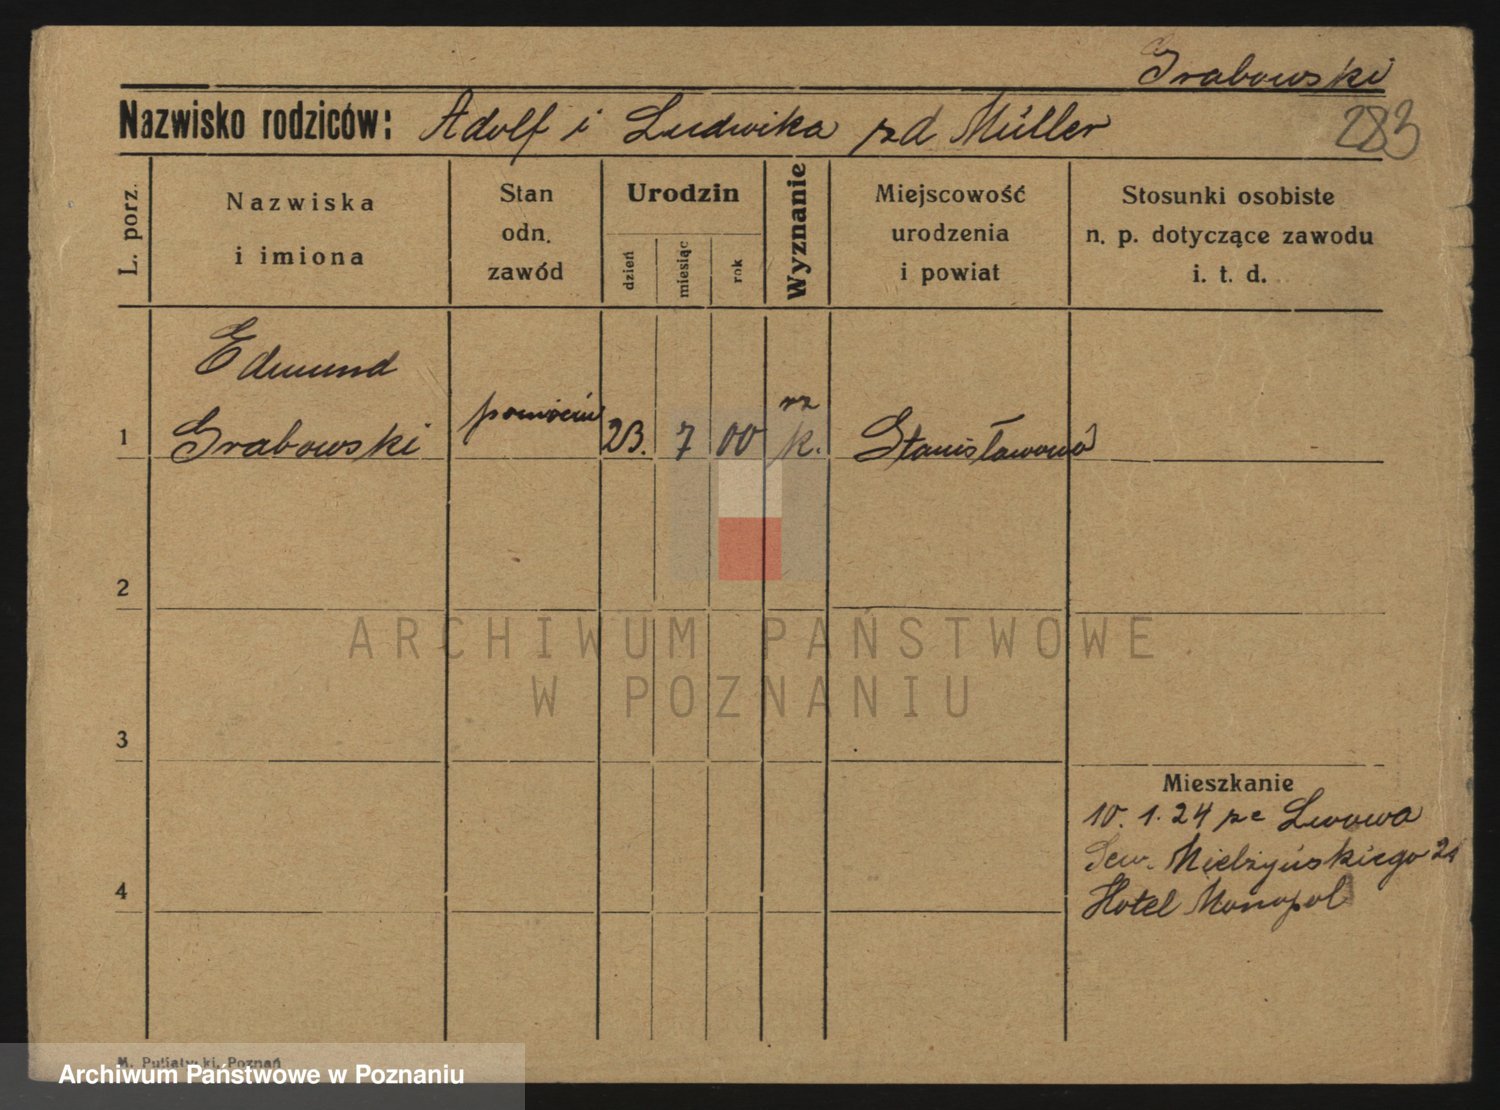 Grabowski
Nazwisko rodziców: Adolf i Ludwika zd Müller
283
L. porz.
Nazwiska
i imiona
Stan
odn.
zawód
Urodzin
dzień
miesiąc
rok
Wyznanie
Miejscowość
urodzenia
i powiat
Stosunki osobiste
n. p. dotyczące zawodu
i. t. d.
Edmund
1 Grabowski
23. 7 00 rz k. Stanisławowa
2
ARCHIWUM PAŃSTWOWE
W POZNANIU
3
Mieszkanie
10. 1. 24 ze Lwowa
Sew. Mielżyńskiego 21
4
Hotel Monopol
M. Putiatycki, Poznań
Archiwum Państwowe w Poznaniu